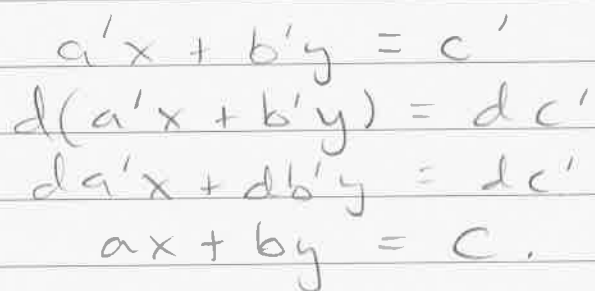 a'x + b'y = c'
d(a'x + b'y) = dc'
da'x + db'y = dc'
ax + by = c.